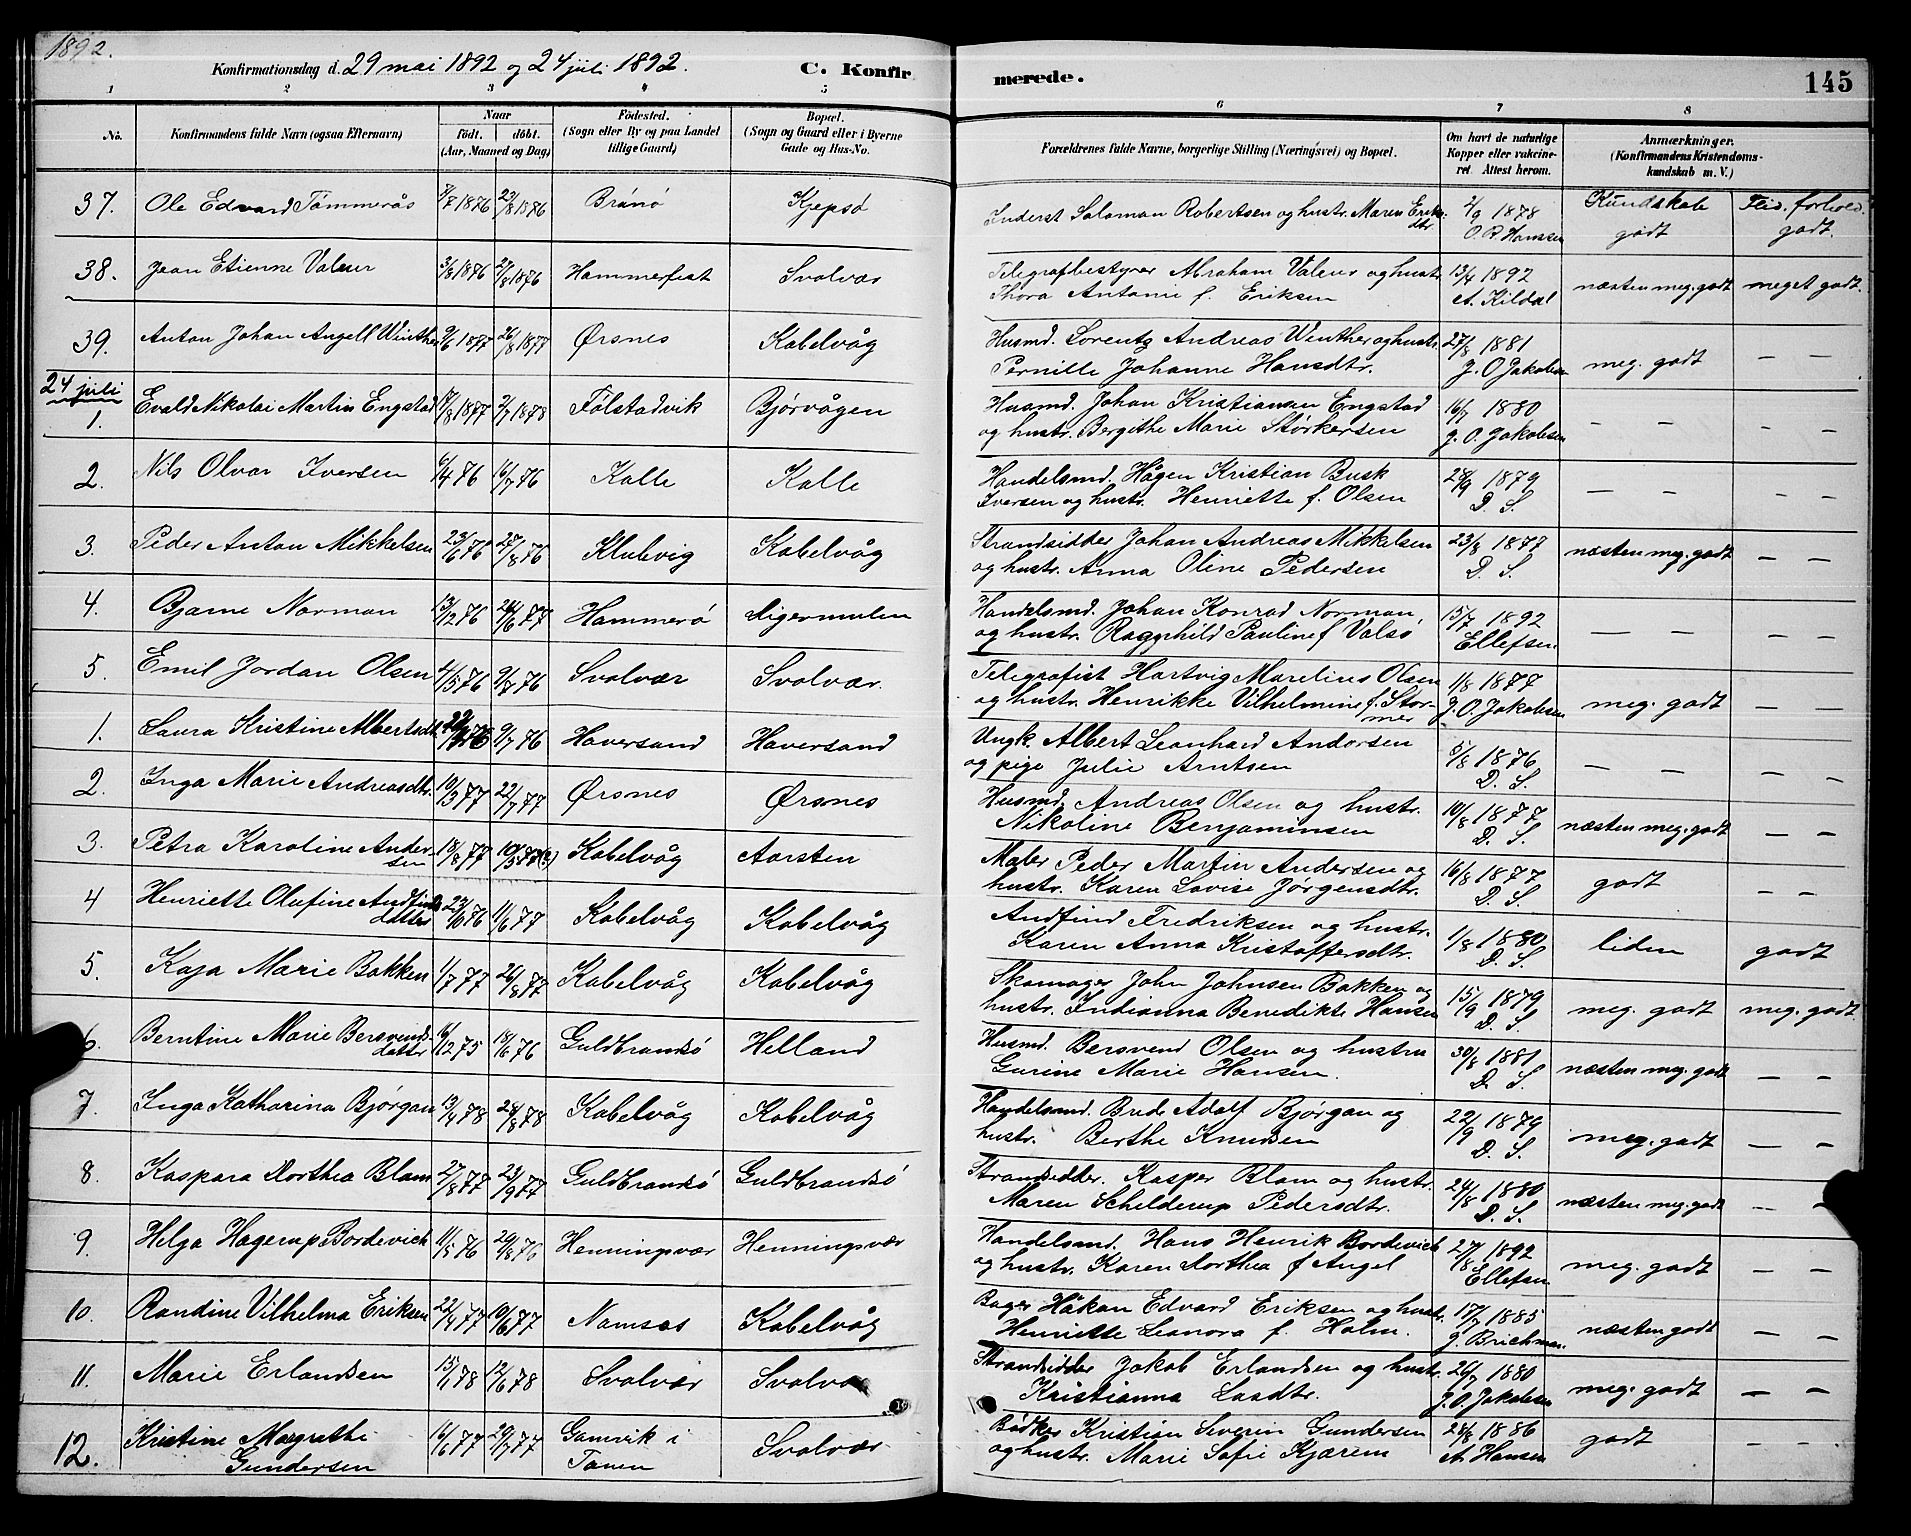 1892.
Konfirmationsdag d. 29 mai 1892 og 24 juli 1892. C. Konfirmerede. 145
1 2 3 4 5 6 7 8
No. Konfirmandens fulde Navn (ogsaa Efternavn) Naar födt. döbt. (Aar, Maaned og Dag) Födested. (Sogn eller By og paa Landet tillige Gaard) Bopæl. (Sogn og Gaard eller i Byerne Gade og Hus-No. Forældrenes fulde Navne, borgerlige Stilling (Næringsvei) og Bopæl. Om havt de naturlige Kopper eller vakcineret. Attest herom. Anmærkninger. (Konfirmandens Kristendomskundskab m. V.)
Kundskab Flid. forhold.
37. Ole Edvard Tömmerås 4/7 1876 27/8 1876 Brönö Kjepsö Inderst Salomon Robertsen og hustr. Maren Eriksdtr. 2/9 1878 O. B. Hanssen godt godt.
38. Jean Etienne Valeur 3/8 1876 27/8 1876 Hammerfest Svolvær Telegrafbestyrer Abraham Valeur og hustr. Thora Antonie f. Eriksen 13/4 1892 A. Kildal næsten meg. godt meget godt.
39. Anton Johan Angell Winther 9/6 1877 26/8 1877 Ørsnes Kabelvåg Husmd. Lorentz Andreas Winther og hustr. Pernille Johanne Hansdtr. 27/8 1881 J. O. Jakobsen meg. godt — —
24 juli
1. Evald Nikolai Martin Engstad 17/8 1877 2/7 1878 Følstadvik Bjørvågen Husmd. Johan Kristiansen Engstad og hustr. Bergithe Marie Størkersen 16/7 1880 J. O. Jakobsen — — — —
2. Nils Olvar Iversen 6/4 76 16/7 76 Kalle Kalle Handelsmd. Hågen Kristian Busk Iversen og hustr. Henriette f. Olsen 28/9 1879 D. S. — — — —
3. Peder Anton Mikkelsen 23/6 76 27/8 76 Klubvig Kabelvåg Strandsidder Johan Andreas Mikkelsen og hustr. Anna Oline Pedersen 23/8 1877 D. S. næsten meg. godt — —
4. Bjarne Norman 13/12 76 24/6 77 Hammerö Digermulen Handelsmd. Johan Konrad Norman og hustr. Ragnhild Pauline f Valsö 15/7 1892 Ellefsen — — — —
5. Emil Jordan Olsen 4/5 76 9/7 76 Svolvær Svolvær. Telegrafist Hartvig Marelius Olsen og hustr. Henrikke Vilhelmine f. Stormer 1/8 1877 J. O. Jakobsen meg. godt — —
1. Laura Kristine Albertsdt. 76 9/7 76 Haversand Haversand Ungk. Albert Leonhard Andorsen og pige Julie Arntsen 5/8 1876 D. S. — — — —
2. Inga Marie Andreasdtr. 10/3 77 22/7 77 Ørsnes Ørsnes Husmd. Andreas Olsen og hustr. Nikoline Benjaminsen 10/8 1877 D. S. næsten meg. godt — —
3. Petra Karoline Andersen 18/8 77 10/5 77(?) Kabelvåg Aarsten Maler Peder Martin Andersen og hustr. Karen Lovise Jørgensdtr. 16/8 1877 D. S. godt — —
4 Henriette Olufine Andfindsdatter 23/10 76 11/6 77 Kabelvåg Kabelvåg Andfind Fredriksen og hustr. Karen Anna Kristoffersdtr. 1/8 1880 D. S. liden godt
5. Kaja Marie Bakken 1/7 77 26/8 77 Kabelvåg Kabelvåg Skomager John Johnsen Bakken og hustr. Indianna Benedikte Hansen 15/9 1879 D. S. meg. godt meg. godt.
6. Berntine Marie Bersvendsdatter 6/12 75 18/6 76 Guldbrandsö Helland Husmd. Bersvend Olsen og hustru Gurine Marie Hansen. 30/8 1881 D. S. næsten meg. godt — —
7. Inga Katharina Bjørgan 13/4 78 28/8 78 Kabelvåg Kabelvåg Handelsmd. Brde Adolf Bjørgan og hustr. Berthe Knudsen 22/9 1879 D. S. meg. godt — —
8. Kaspara Dorthea Blam 27/8 77 23/9 77 Guldbrandsö Guldbrandsö Strandsidder. Kasper Blam og hustr. Maren Schelderup Pedersdtr. 24/8 1880 D. S. næsten meg. godt — —
9. Helga Hagerup Bordevich 11/5 76 29/8 76 Henningsvær Henningsvær Handelsmd. Hans Henrik Bordevich og hustr. Karen Dorthea f Angel 27/8 1892 Ellefsen meg. godt — —
10. Randine Vilhelma Eriksen 22/4 77 10/6 77 Namsos Kabelvåg Bager Håkan Edvard Eriksen og hustr. Henriette Leonora f. Holm. 17/7 1885 J. Brichman næsten godt — —
11. Marie Erlandsen 15/1 78 12/6 78 Svolvær Svolvær Strandsidder Jakob Erlandsen og hustr. Kristianna Larsdtr. 26/7 1880 J. O. Jakobsen meg. godt — —
12. Kristine Margrethe Gundersen 16/6 77 29/7 77 Gamvik i Tanen Svolvær Bödker Kristian Severin Gundersen og hustr. Marie Sofie Kjærem 28/8 1886 A. Hansen godt — —